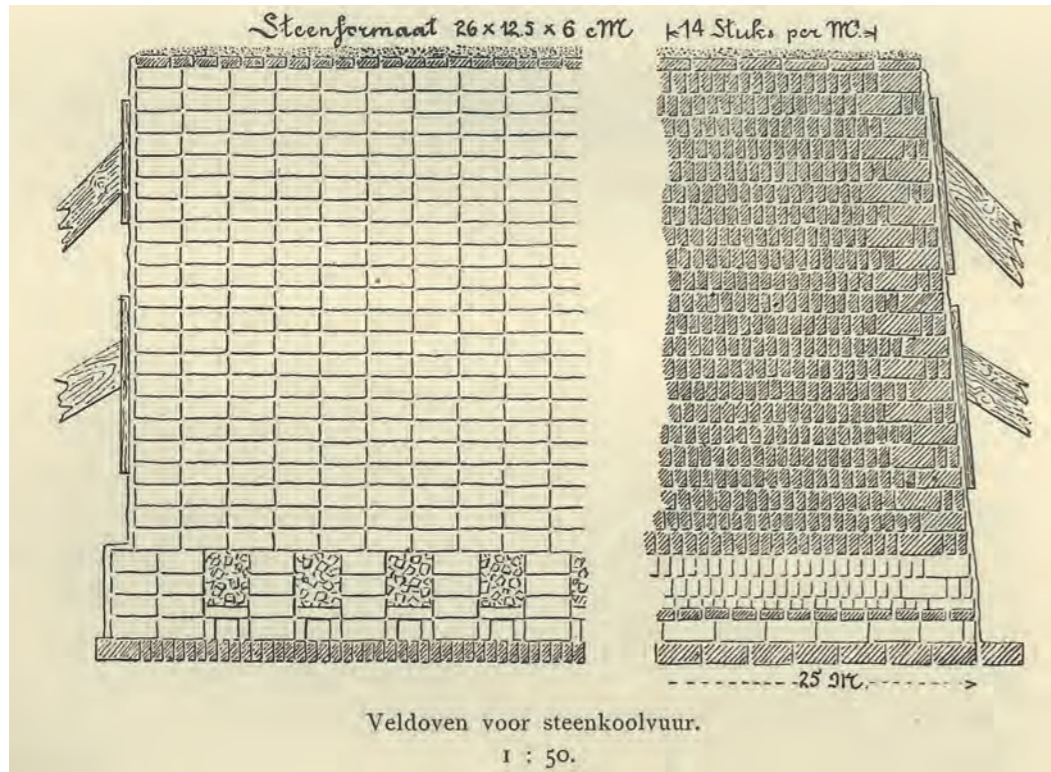 Steenformaat 26 x 12.5 x 6 cM 14 Stuks per M¹.
25 M.
Veldoven voor steenkoolvuur.
1 : 50.